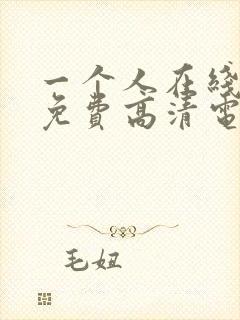 一个人在线
免费高清电
毛妞